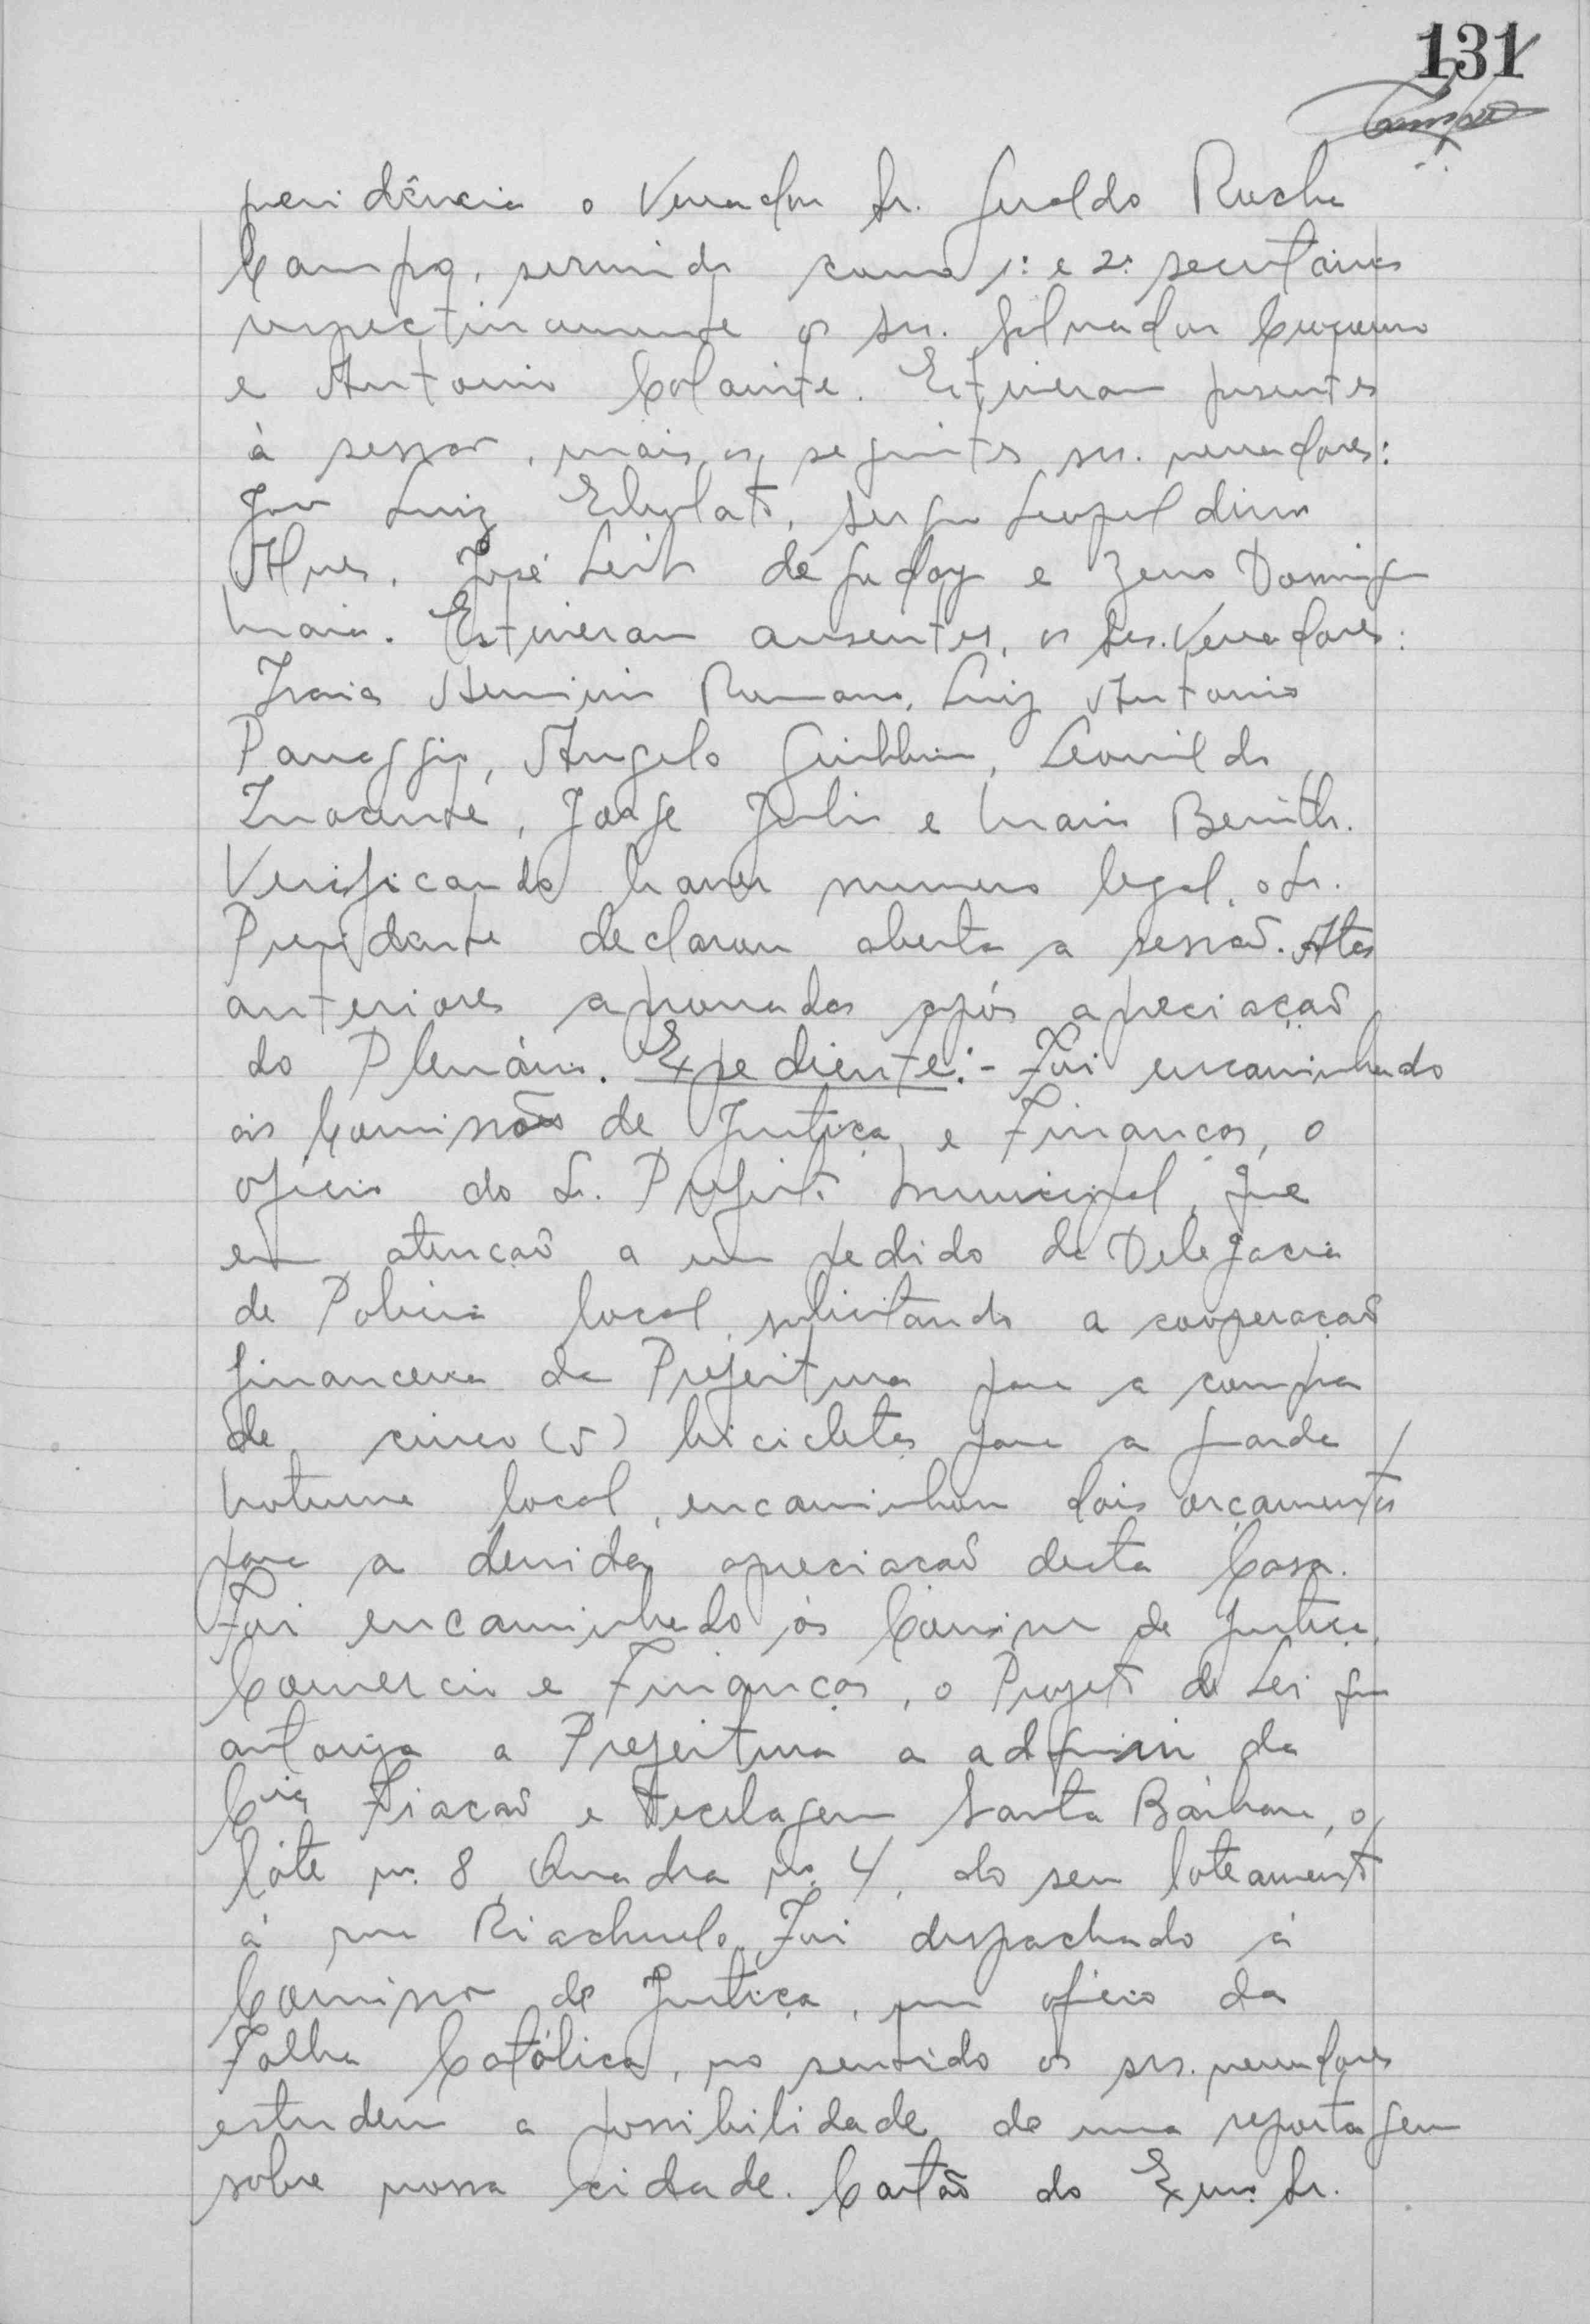 131
presidência o Vereador Sr. Geraldo Rocha
Campos, servindo como 1º e 2º secretários
respectivamente os srs. Salvador
e Antonio Colamite. Estiveram presentes
à sessão, mais os seguintes srs. vereadores:
João Luiz Sergio Leopoldino
Alves, José Leite de Godoy e Zeno Domingos
Maia. Estiveram ausentes, os Srs. Vereadores:
Isaias Herminio Romano, Luiz Antonio
Panaggio, Angelo Giubbina, Leonildo
Inocente, Jorge Julio e Mario Benith.
Verificando haver numero legal, o Sr.
Presidente declarou aberta a sessão. Atas
anteriores aprovadas após apreciação
do Plenário. Expediente:- Foi encaminhado
às Comissões de Justiça e Finanças, o
oficio do Sr. Prefeito Municipal, que
em atenção a um pedido da Delegacia
de Policia local, solicitando a cooperação
financeira da Prefeitura para a compra
de cinco (5) bicicletas para a guarda
noturna local, encaminhou dois orçamentos
para a devida apreciação desta Casa.
Foi encaminhado às Comissões de Justiça,
Comercio e Finanças, o Projeto de Lei que
autoriza a Prefeitura a adquirir da
Cia Fiação e Tecelagem Santa Bárbara, o
lóte nº 8, Quadra nº 4, do seu loteamento
à rua Riachuelo. Foi despachado à
Comissão de Justiça, um oficio da
Folha Católica, no sentido os srs. vereadores
estudem a possibilidade de uma reportagem
sobre nossa cidade. Cartão do Exmo. Sr.